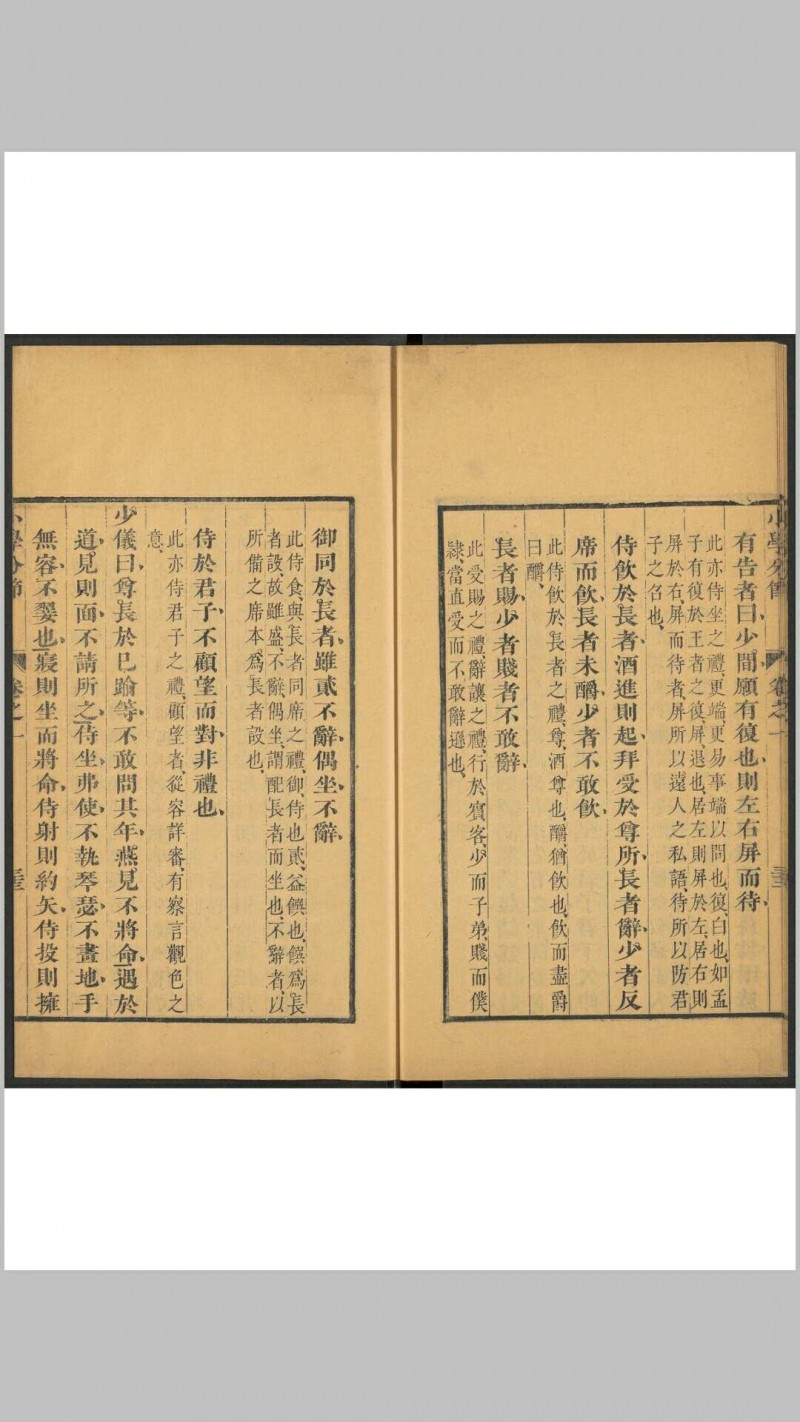 有告者曰、少間願有復也、則左右屏而待、
此亦侍坐之禮、更端、更易事端以問也、復、白也、如孟
子有復於王者之復、屏、退也、居左則屏於左、居右則
屏於右、屏而待者、屏所以遠人之私語、待所以防君
子之召也、
侍飲於長者、酒進則起、拜受於尊所、長者辭、少者反
席而飲、長者未釂、少者不敢飲、
此侍飲於長者之禮、尊、酒尊也、釂、猶飲也、飲而盡爵
曰釂、
長者賜、少者賤者不敢辭、
此受賜之禮、辭讓之禮、行於賓客、少而子弟、賤而僕
隸、當直受而不敢辭遜也、
御同於長者、雖貳不辭、偶坐不辭、
此侍食、與長者同席之禮、御、侍也、貳、益饌也、饌爲長
者設、故雖盛、不辭、偶坐、謂配長者而坐也、不辭者、以
所備之席本爲長者設也、
侍於君子、不顧望而對、非禮也、
此亦侍君子之禮、顧望者、從容詳審、有察言觀色之
意、
少儀曰、尊長於已踰等、不敢問其年、燕見不將命、遇於
道、見則面、不請所之、侍坐弗使、不執琴瑟、不畫地、手
無容、不翣也、寢則坐而將命、侍射則約矢、侍投則擁
小學分節
卷之一